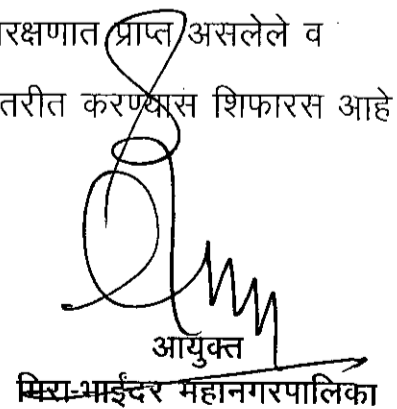 रक्षणात प्राप्त असलेले व
तरीत करण्यास शिफारस आहे
आयुक्त
मिरा-भाईंदर महानगरपालिका